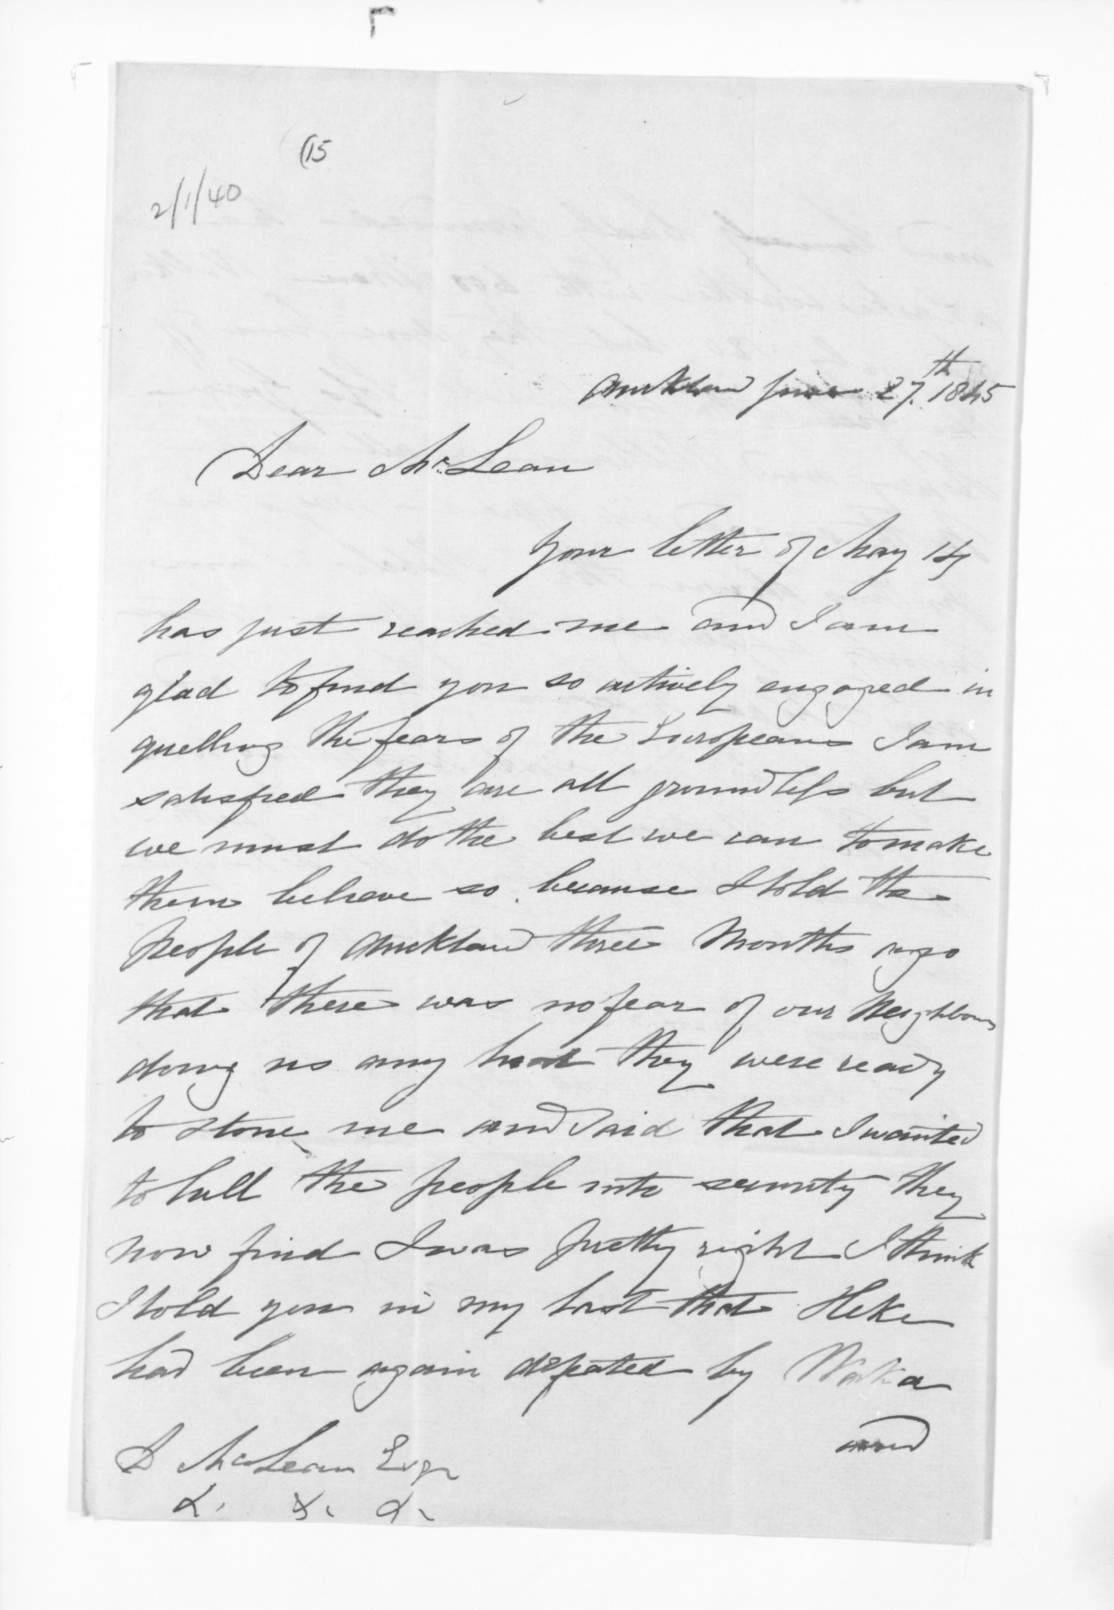 (15
2/1/40
Auckland June 27th. 1845
Dear McLean
Your letter of May 14
has just reached me and I am
glad to find you so actively engaged in
quelling the fears of the Europeans I am
satisfied they are all groundless but
we must do the best we can to make
them believe so. because I told the
People of Auckland three Months ago
that there was no fear of our Neighbours
doing us any hurt they were ready
to stone me and said that I wanted
to lull the people into security they
now find I was pretty right I think
I told you in my last that Heke
had been again defeated by Waka
and
D McLean Esqr
&. &. &.